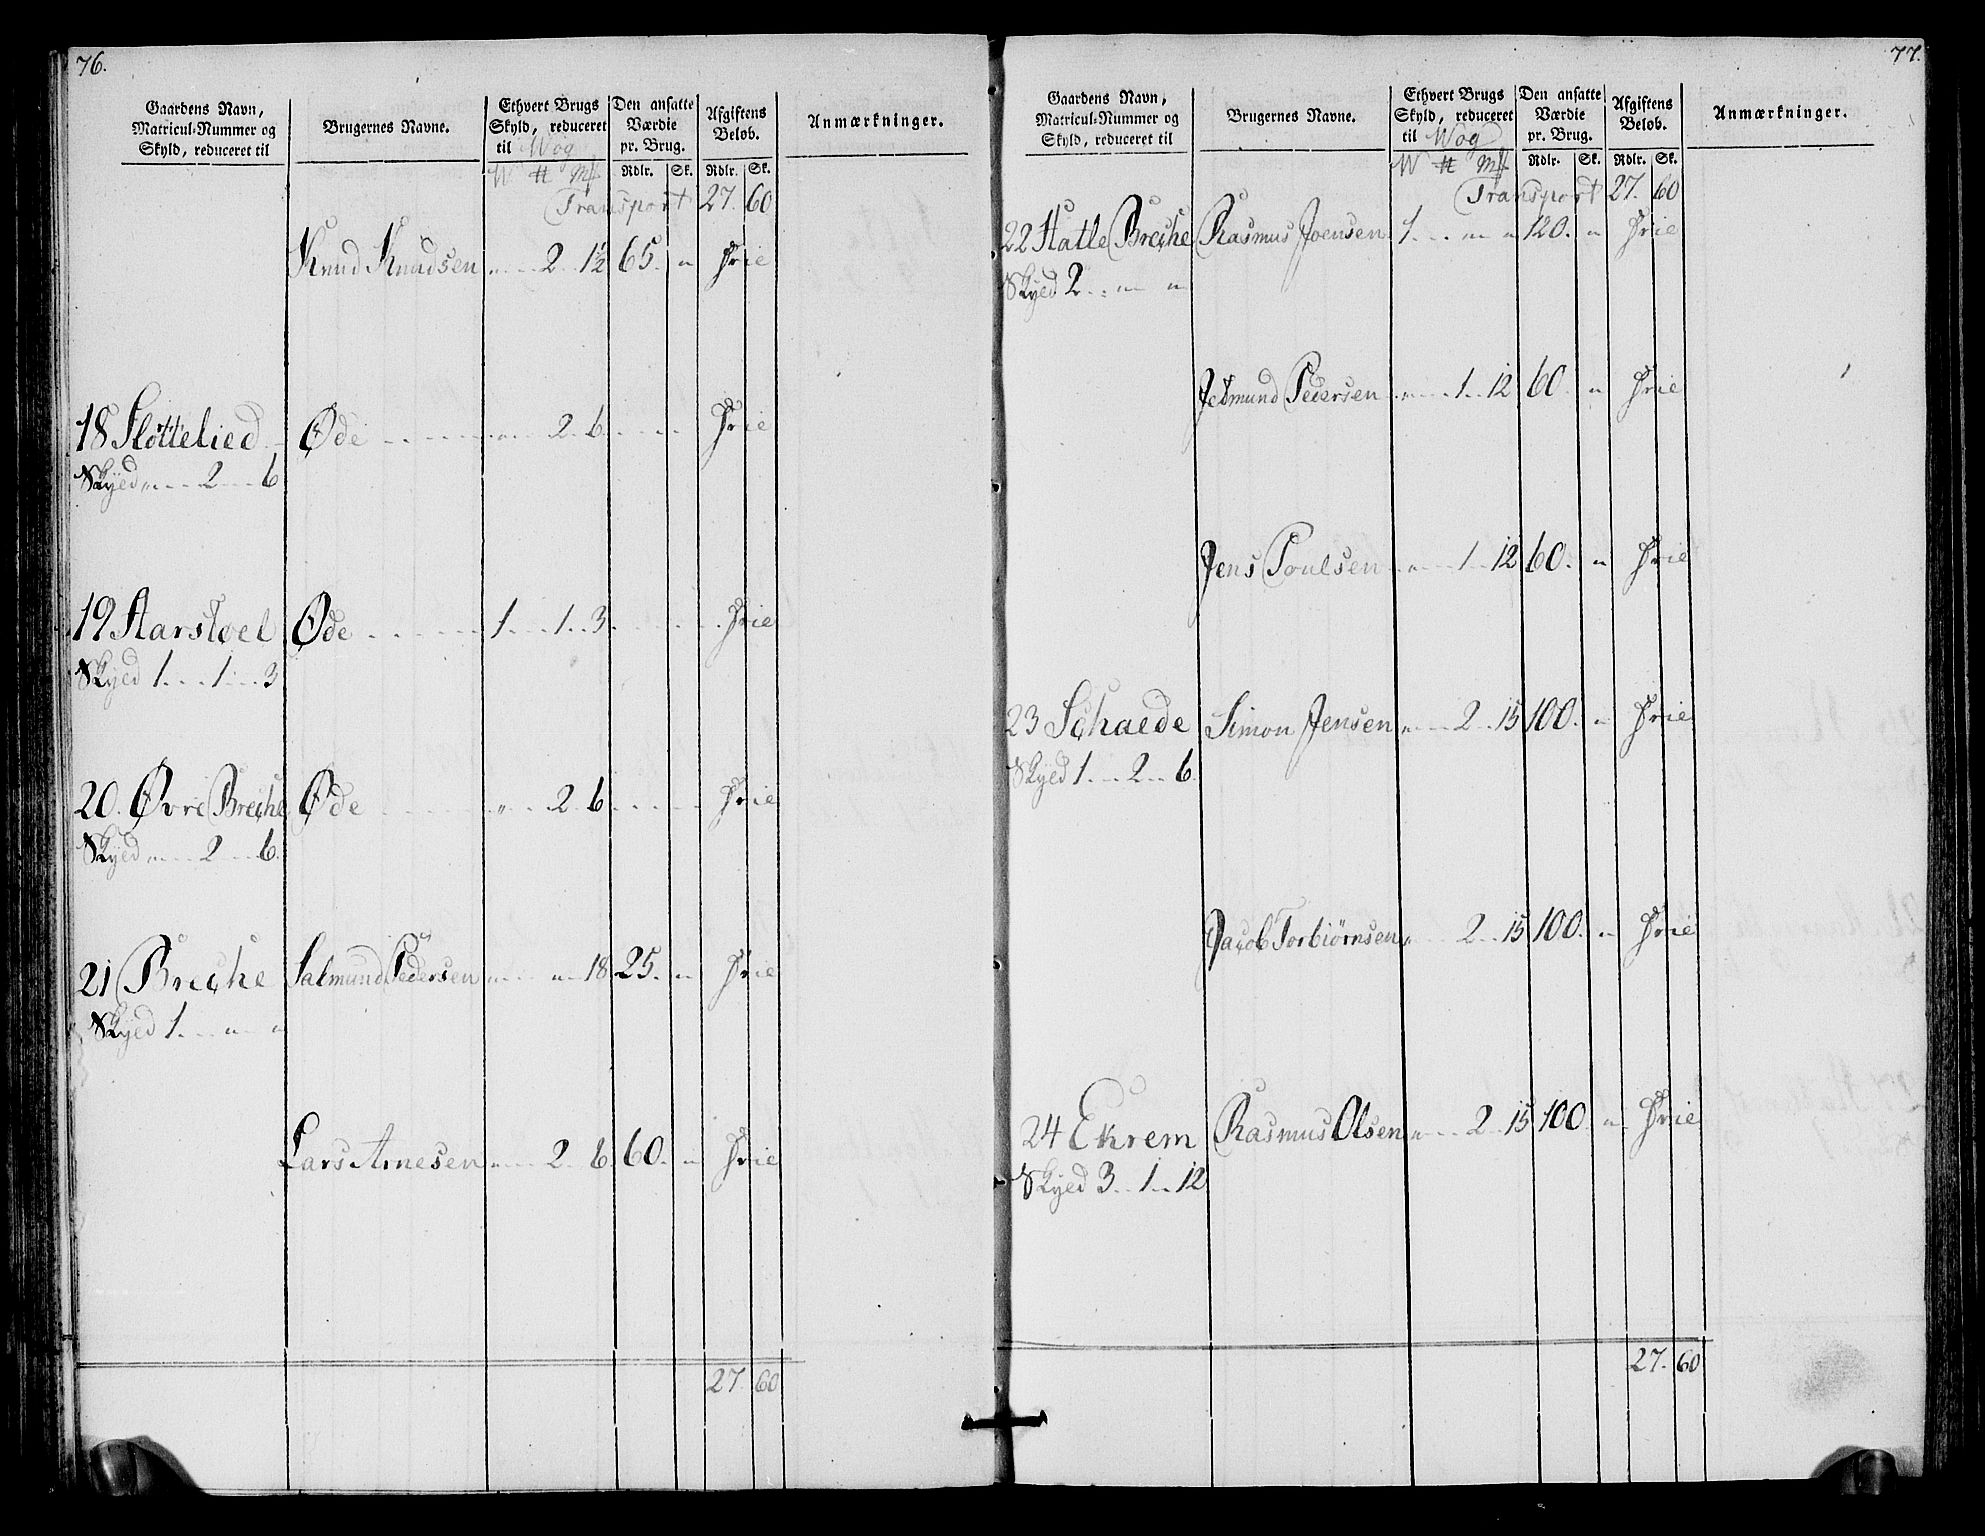 76.
Gaardens Navn, Matricul-Nummer og Skyld, reduceret til
Brugernes Navne.
Ethvert Brugs Skyld, reduceret til Wog
Den ansatte Værdie pr. Brug.
Afgiftens Beløb.
Anmærkninger.
W ℔ Mk Rdlr. Sk. Rdlr. Sk.
Transport 27. 60
Knud Knudsen " 2 1½ 65. " Frie
18 Fløttelied Øde " 2 6 Frie
Skyld " 2 6
19 Aarstoel Øde 1 1 3 Frie
Skyld 1 1 3
20. Øvre Breche Øde " 2 6 Frie
Skyld " 2 6.
21 Breche Salmund Pedersen " " 18 25. " Frie
Skyld 1 " "
Lars Arnesen " 2 6 60. " Frie
27 60
77.
Gaardens Navn, Matricul-Nummer og Skyld, reduceret til
Brugernes Navne.
Ethvert Brugs Skyld, reduceret til Wog
Den ansatte Værdie pr. Brug.
Afgiftens Beløb.
Anmærkninger.
W ℔ Mk Rdlr. Sk. Rdlr. Sk.
Transport 27. 60
22 Hatle Breche Rasmus Joensen 1 " " 120. " Frie
Skyld 2 " "
Jetmund Pedersen " 1 12 60. " Frie
Jens Poulsen " 1 12 60. " Frie
23 Schaede Simon Jensen " 2 15 100. " Frie
Skyld 1 2 6.
Jacob Torbiørnsen " 2 15 100. " Frie
24 Ekrem Rasmus Olsen " 2 15 100. " Frie
Skyld 3 1 12
27. 60